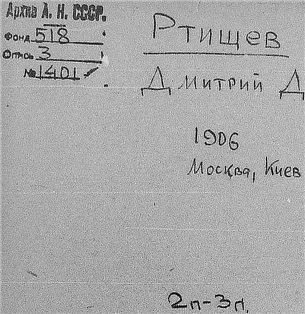 Архив А. Н. СССР.
Фонд 518
Опись 3
№ 1401
Ртищев
Дмитрий Д
1906
Москва, Киев
2п-3п.